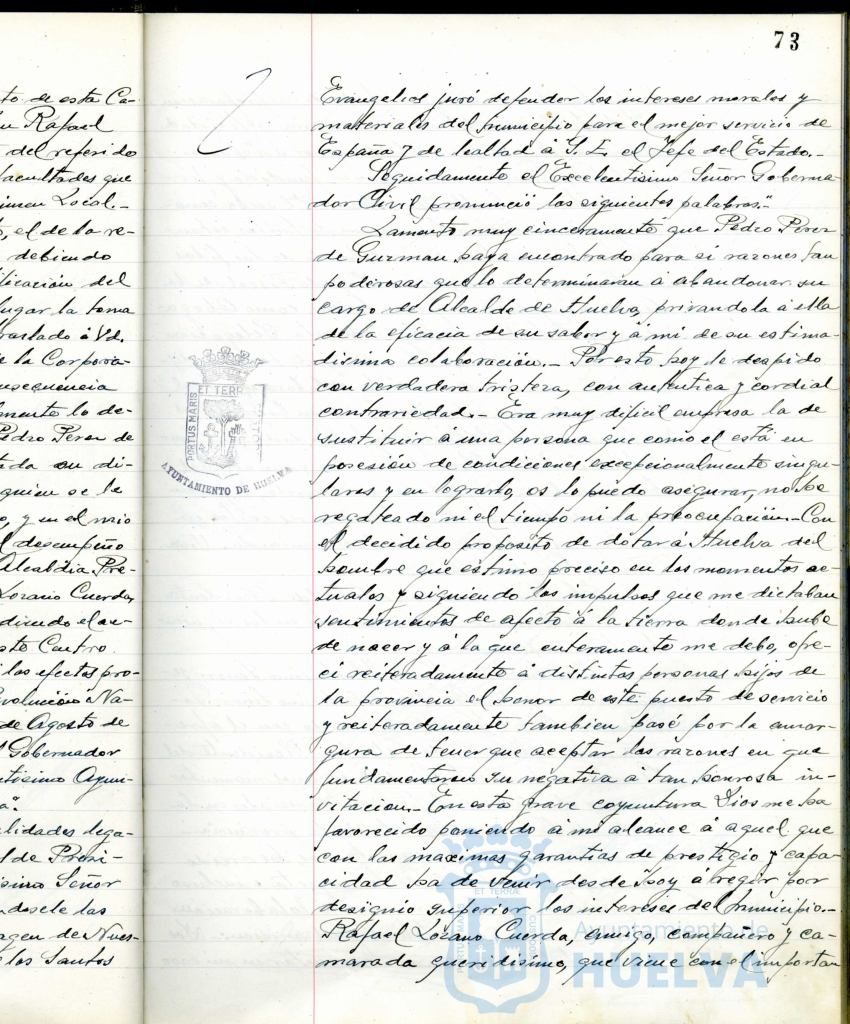 73
to de esta Ca-
Rafael
del referido
facultades que
Local.-
, el de la re-
debiendo
del
lugar la toma
trasladado á Vd.
la Corpora-
consecuencia
lo de-
Pedro Perez de
en di-
quien se le
, y en el mio
desempeño
Alcaldía Pre-
Lozano Cuerda,
el ac-
este Centro
los efectos pro-
Na-
de Agosto de
Gobernador
Ayun-
lidades lega-
de Presi-
simo Señor
las
Imagen de Nues-
los Santos
Evangelios juró defender los intereses morales y
materiales del municipio para el mejor servicio de
España y de lealtad á S. E. el Jefe del Estado.-
Seguidamente el Excelentisimo Señor Goberna-
dor Civil pronunció las siguientes palabras:"
Lamento muy cinceramente que Pedro Perez
de Guzman haya encontrado para si razones tan
poderosas que lo determinaran á abandonar su
cargo de Alcalde de Huelva, privandola á ella
de la eficacia de su labor y á mi de su estima-
disima colaboración.- Por esto hoy le despido
con verdadera tristeza, con autentica y cordial
contrariedad.- Era muy dificil empresa la de
sustituir á una persona que como el está en
posesión de condiciones excepcionalmente singu-
lares y en lograrlo, os lo puedo asegurar, no he
regateado ni el tiempo ni la preocupación.- Con
el decidido proposito de dotar á Huelva del
hombre que estimo preciso en los momentos ac-
tuales y siguiendo los impulsos que me dictaban
sentimientos de afecto á la tierra donde hube
de nacer y á la que enteramente me debo, ofre-
ci reiteradamente á distintas personas hijos de
la provincia el honor de este puesto de servicio
y reiteradamente tambien pasé por la amar-
gura de tener que aceptar las razones en que
fundamentaron su negativa á tan honrosa in-
vitacion.- En esta grave coyuntura Dios me ha
favorecido poniendo á mi alcance á aquel que
con las maximas garantias de prestigio y capa-
cidad ha de venir desde hoy á regir por
designio superior los intereses del municipio.-
Rafael Lozano Cuerda, amigo, compañero y ca-
marada queridisimo, que viene con el importan
PORTUS MARIS ET TERRAE CUSTODIA
AYUNTAMIENTO DE HUELVA
Ayuntamiento de
HUELVA